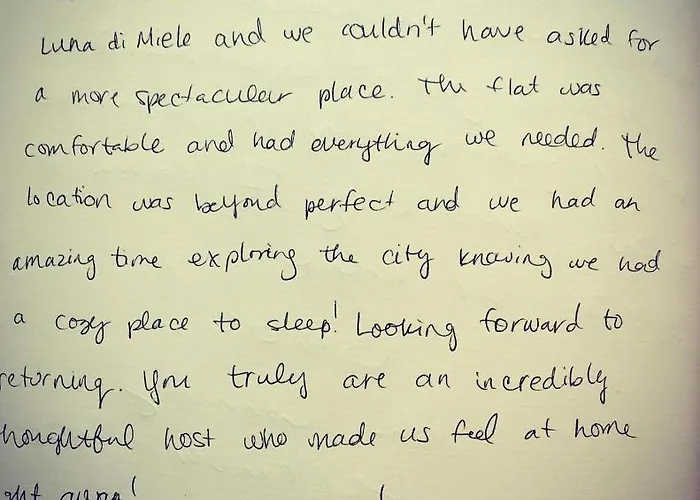 Luna di Miele and we couldn't have asked for
a more spectacular place. The flat was
comfortable and had everything we needed. The
location was beyond perfect and we had an
amazing time exploring the city knowing we had
a cozy place to sleep! Looking forward to
returning. You truly are an incredibly
thoughtful host who made us feel at home